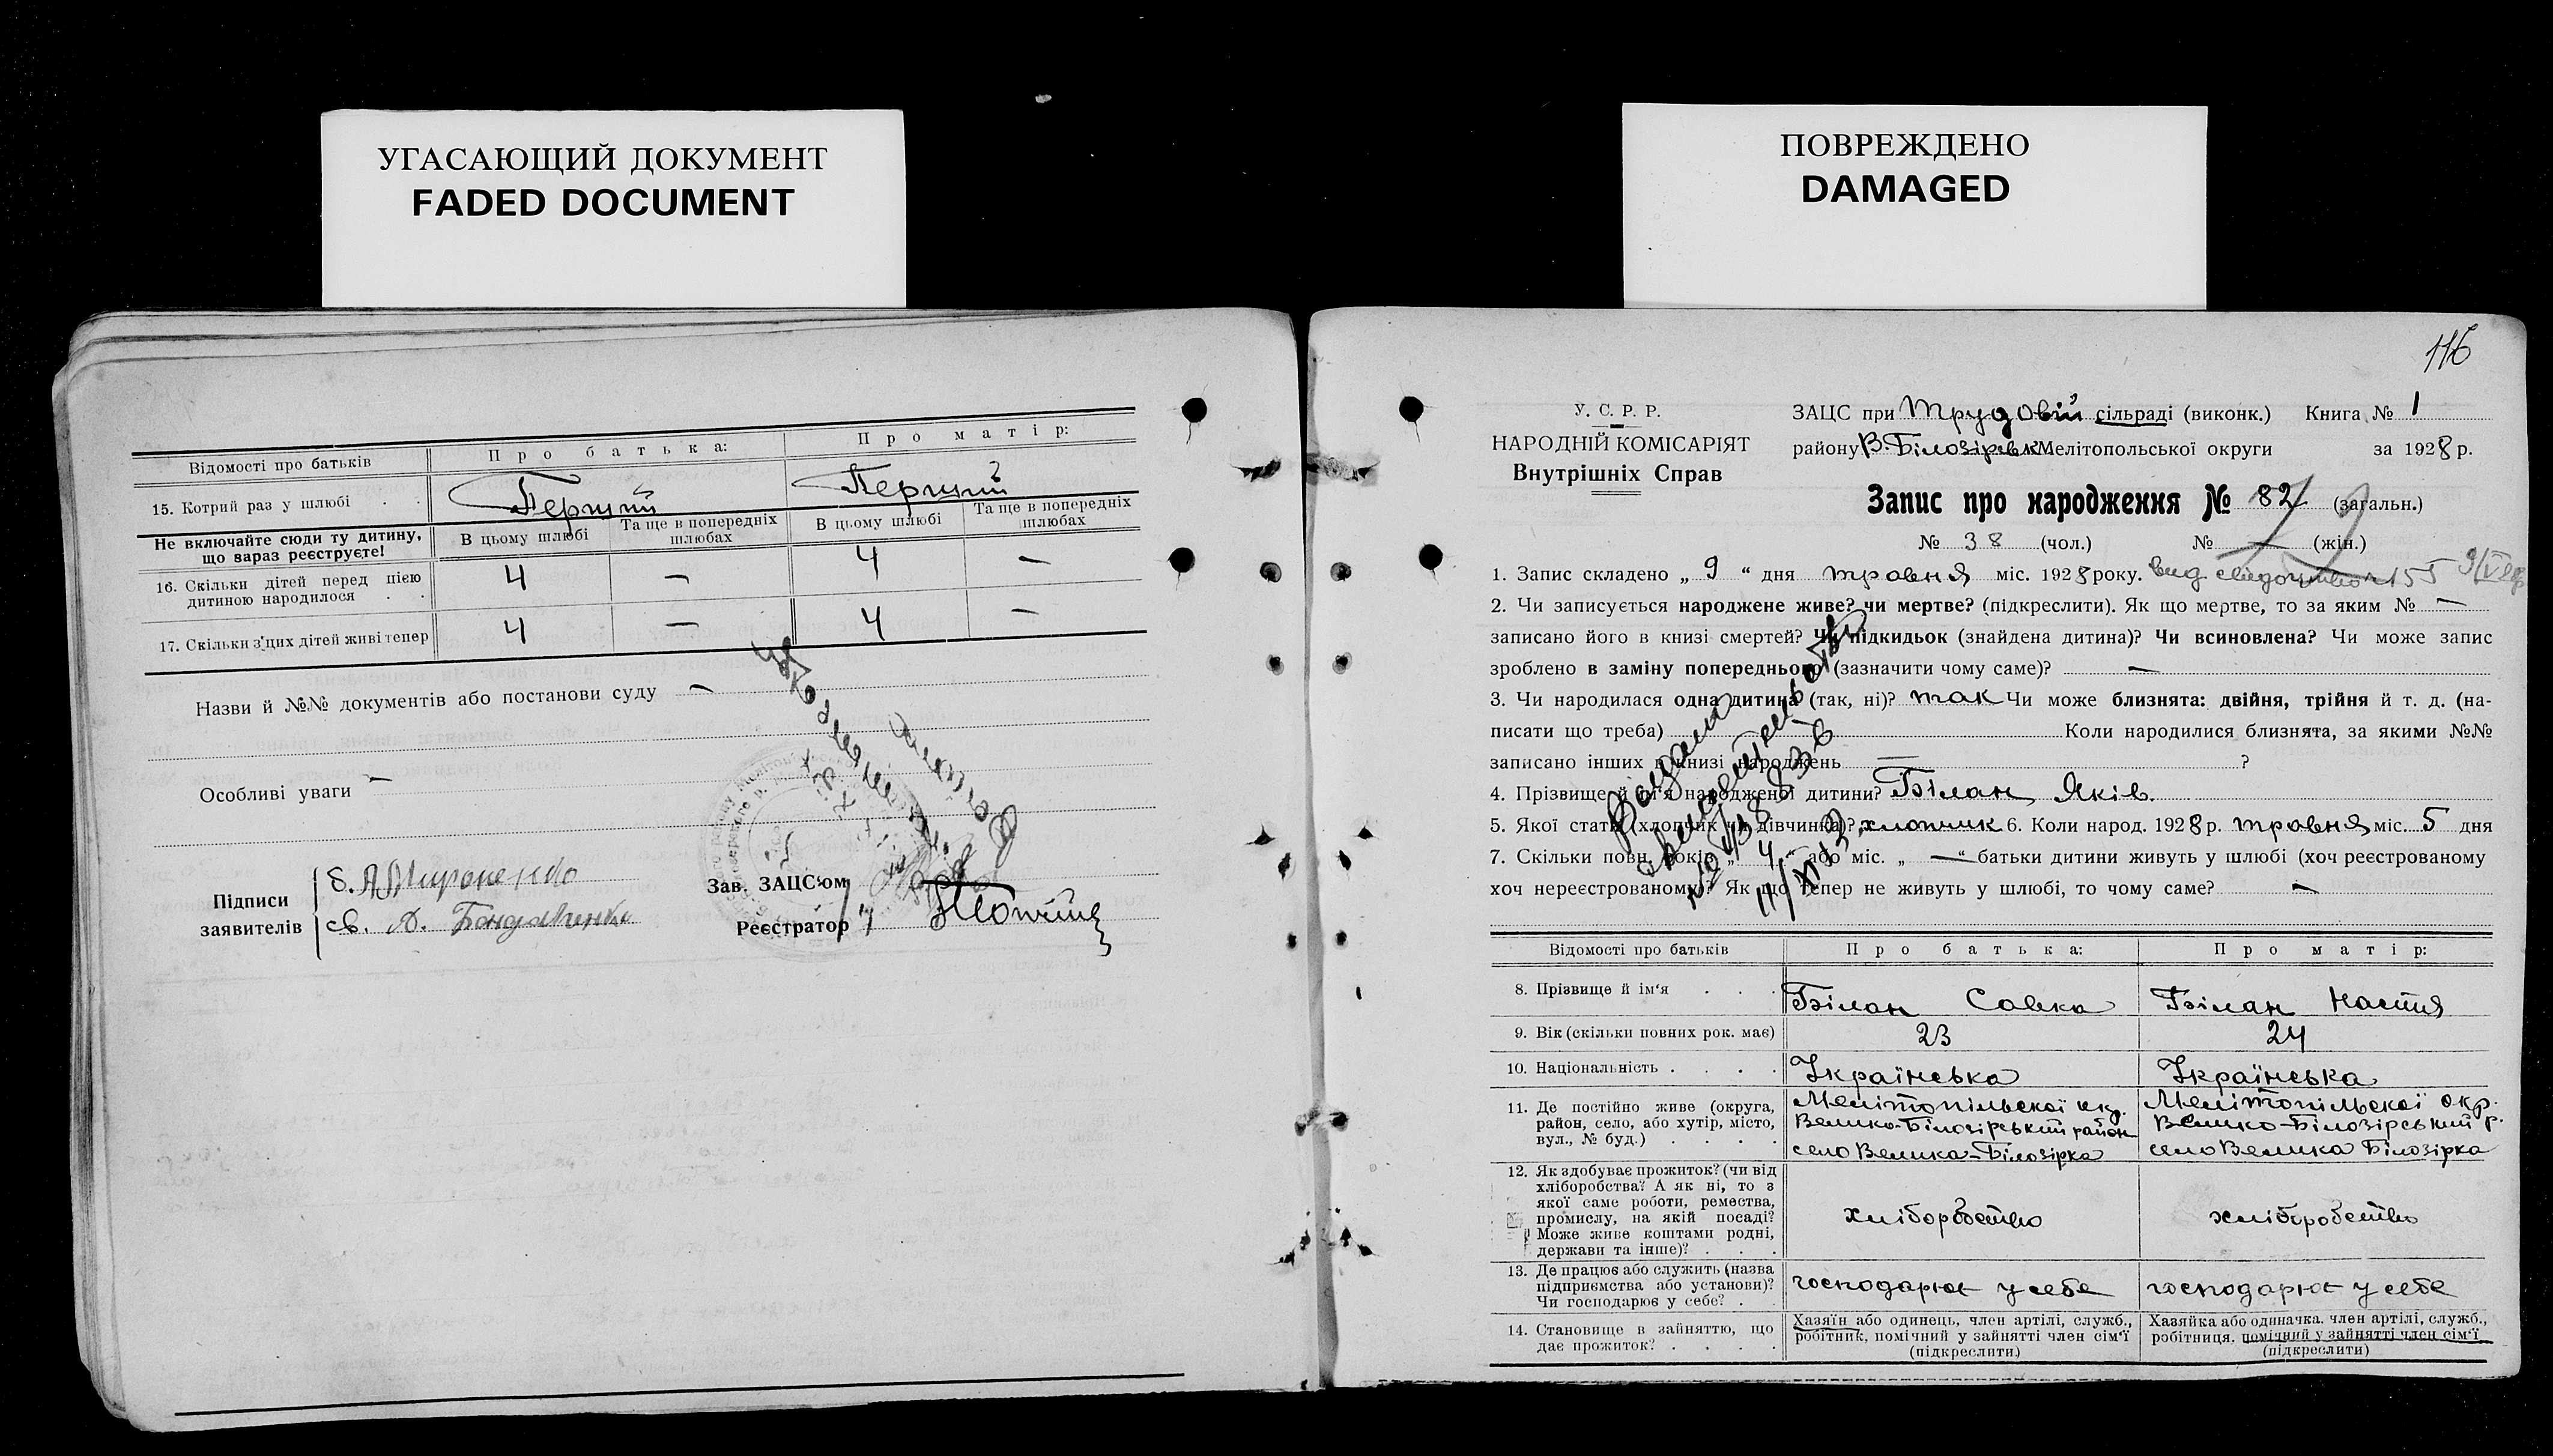 УГАСАЮЩИЙ ДОКУМЕНТ
FADED DOCUMENT
Відомості про батьків Про батька: Про матір:
15. Котрий раз у шлюбі . . Перший Перший
Не включайте сюди ту дитину, що вараз реєструєте! В цьому шлюбі Та ще в попередніх шлюбах В цьому шлюбі Та ще в попередніх шлюбах
16. Скільки дітей перед цією
дитиною народилося . . 4 — 4 —
17. Скільки з'цих дітей живі тепер 4 — 4 —
Назви й №№ документів або постанови суду —
Особливі уваги —
Підписи
заявителів
б. А Мироненко
св. Д. Бондаренко
Зав. ЗАЦС'ом
Реєстратор
ПОВРЕЖДЕНО
DAMAGED
116
У. С. Р. Р.
НАРОДНІЙ КОМІСАРІЯТ
Внутрішніх Справ
ЗАЦС при Трудовій сільраді (виконк.) Книга № 1
району В. Білозірськ Мелітопольської округи за 1928 р.
Запис про народження № 82 (загальн.)
№ 38 (чол.) № — (жін.)
1. Запис складено „ 9 “ дня травня міс. 1928 року. вид 155 9/V
2. Чи записується народжене живе? чи мертве? (підкреслити). Як що мертве, то за яким № —
записано його в книзі смертей? Чи підкидьок (знайдена дитина)? Чи всиновлена? Чи може запис
зроблено в заміну попереднього? (зазначити чому саме)? —
3. Чи народилася одна дитина (так, ні)? так Чи може близнята: двійня, трійня й т. д. (на-
писати що треба) Коли народилися близнята, за якими №№
записано інших в книзі народжень — ?
4. Прізвище й ім'я народженої дитини? Білан Яків.
5. Якої стати (хлопчик чи дівчинка)? хлопчик 6. Коли народ. 1928 р. травня міс. 5 дня
7. Скільки повн. років „ 4 “ або міс. „ — “ батьки дитини живуть у шлюбі (хоч реєстрованому
хоч нереєстрованому)? Як що тепер не живуть у шлюбі, то чому саме? —
Відомості про батьків Про батька: Про матір:
8. Прізвище й ім'я . . . Білан Савка Білан Настя
9. Вік (скільки повних рок. має) 23 24
10. Національність . . . . Українська Українська
11. Де постійно живе (округа,
район, село, або хутір, місто,
вул., № буд.) . . . .
Мелітопільскої окр.
Велико-Білозірський район
село Велика-Білозірка
Мелітопільскої окр.
Велико-Білозірський р.
село Велика Білозірка
12. Як здобуває прожиток? (чи від
хліборобства? А як ні, то з
якої саме роботи, ремества,
промислу, на якій посаді?
Може живе коштами родні,
держави та інше)? . . .
хліборобство хліборобство
13. Де працює або служить (назва
підприємства або установи)?
Чи господарює у себе? .
господарює у себе господарює у себе
14. Становище в зайняттю, що
дає прожиток? . . . .
Хазяїн або одинець, член артілі, служб.,
робітник, помічний у зайнятті член сім'ї
(підкреслити)
Хазяйка або одиначка, член артілі, служб.,
робітниця, помічний у зайнятті член сім'ї
(підкреслити)